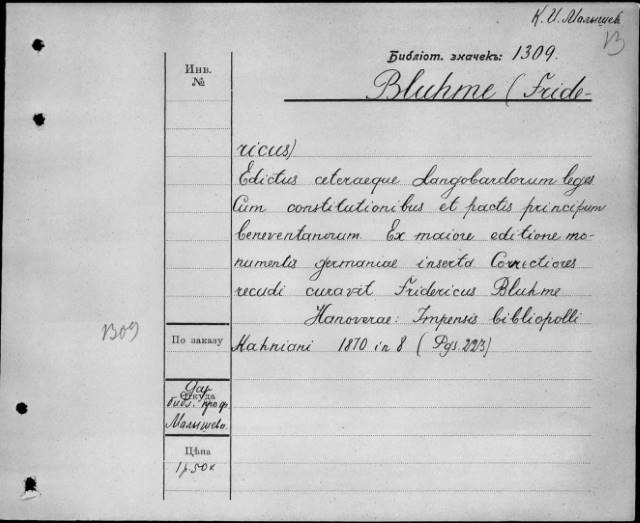 К. И. Малышев
B
Библіот. значекъ: 1309.
Инв.
№
Bluhme (Fride-
ricus)
Edictus ceteraeque Langobardorum leges
Cum constitutionibus et pactis principum
beneventanorum. Ex maiore editione mo-
numentis germaniae inserta Correctiores
recudi curavit Fridericus Bluhme
Hanoverae: Impensis bibliopolii
1309
По заказу
Hahniani 1870 in 8 (Pgs. 223)
Дар
Откуда
библ. проф.
Малышева.
Цѣна
1 р. 50 к